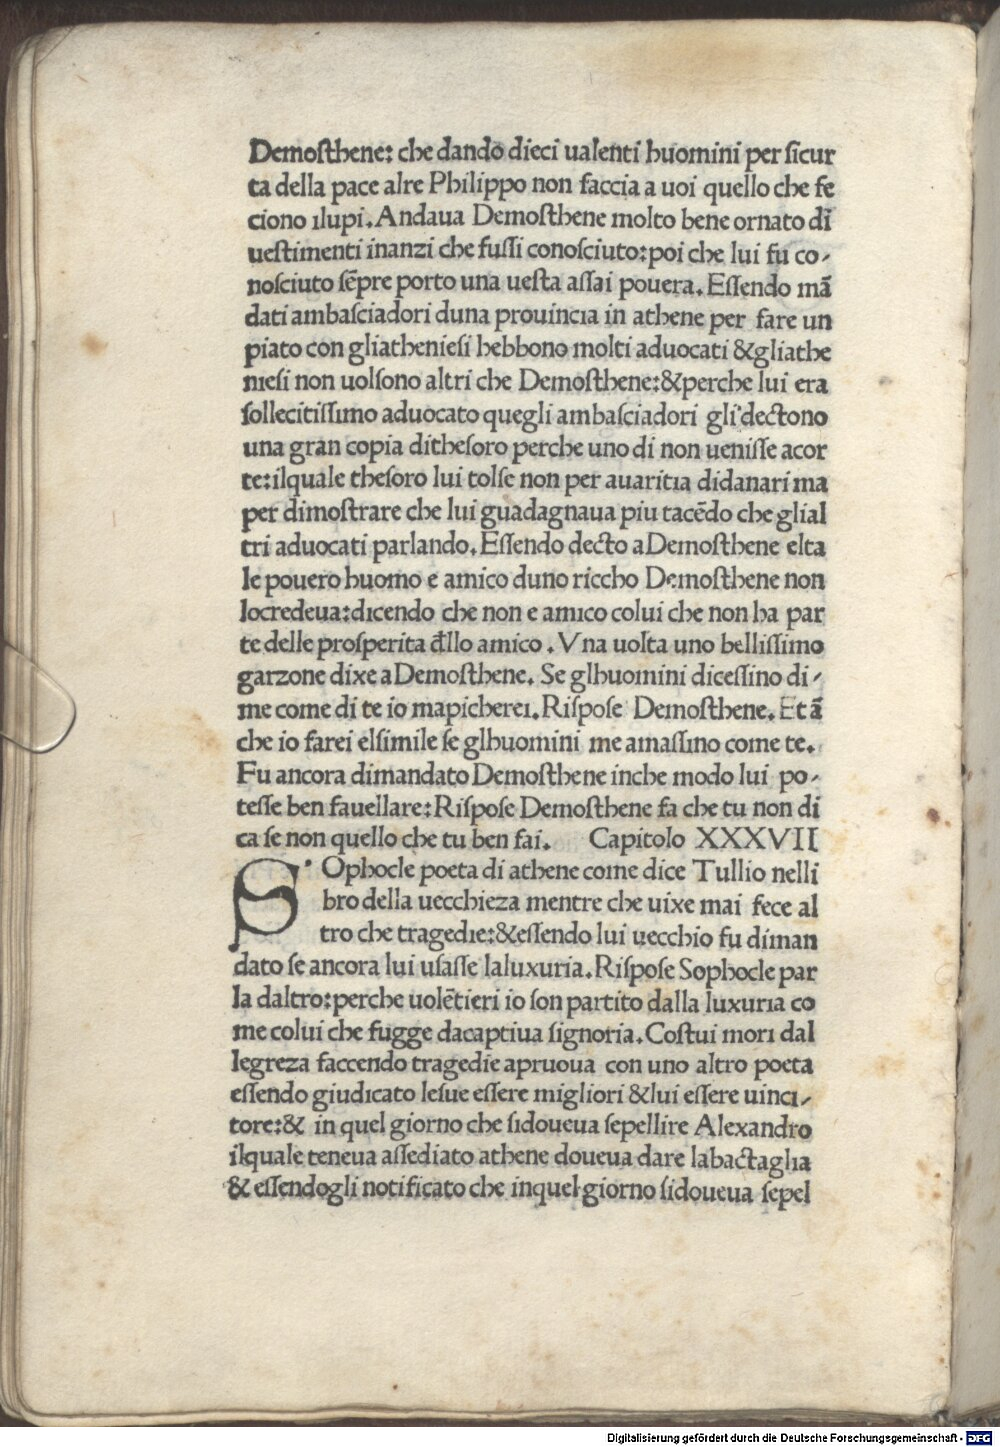 Demoſthene: che dando dieci ualenti huomini per ſicur
ta della pace alre Philippo non faccia a uoi quello che fe
ciono ılupi. Andaua Demoſthene molto bene ornato di
ueſtimenti inanzi che fuſſi conoſciuto: poi che lui fu co-
noſciuto ſēpre porto una ueſta aſſai pouera. Eſſendo mā
dati ambaſciadori duna prouincıa in athene per fare un
piato con gliathenieſi hebbono molti aduocati &gliathe
nıeſi non uolſono altri che Demoſthene: &perche lui era
ſollecitiſſimo aduocato quegli ambaſciadori gli dectono
una gran copia ditheſoro perche uno di non ueniſſe acor
te: ilquale theſoro lui tolſe non per auaritıa didanari ma
per dimoſtrare che lui guadagnaua piu tacēdo che glial
tri aduocati parlando. Eſſendo decto aDemoſthene elta
le pouero huomo e amico duno riccho Demoſthene non
locredeua: dicendo che non e amico colui che non ha par
te delle proſperita đllo amico. Vna uolta uno belliſſimo
garzone dixe aDemoſthene. Se glhuomini diceſſino di-
me come di te io mapichereı. Riſpoſe Demoſthene. Et ā
che io farei elſimile ſe glhuomini me amaſſino come te.
Fu ancora dimandato Demoſthene inche modo lui po-
teſſe ben fauellare: Riſpoſe Demoſthene fa che tu non di
ca ſe non quello che tu ben fai. Capitolo XXXVII
SOphocle poeta di athene come dice Tullio nelli
bro della uecchieza mentre che uixe mai fece al
tro che tragedıe: &eſſendo lui uecchio fu diman
dato ſe ancora lui uſaſſe laluxuria. Riſpoſe Sophocle par
la daltro: perche uolētieri io ſon partito dalla luxurıa co
me colui che fugge dacaptiua ſignoria. Coſtui morı dal
legreza faccendo tragedie apruoua con uno altro poeta
eſſendo giudıcato leſue eſſere migliori &lui eſſere uincı-
tore: & in quel giorno che ſidoueua ſepellire Alexandro
ilquale teneua aſſediato athene doueua dare labactaglıa
& eſſendogli notificato che inquel giorno ſidoueua ſepel
Digitalisierung gefördert durch die Deutsche Forschungsgemeinschaft - DFG